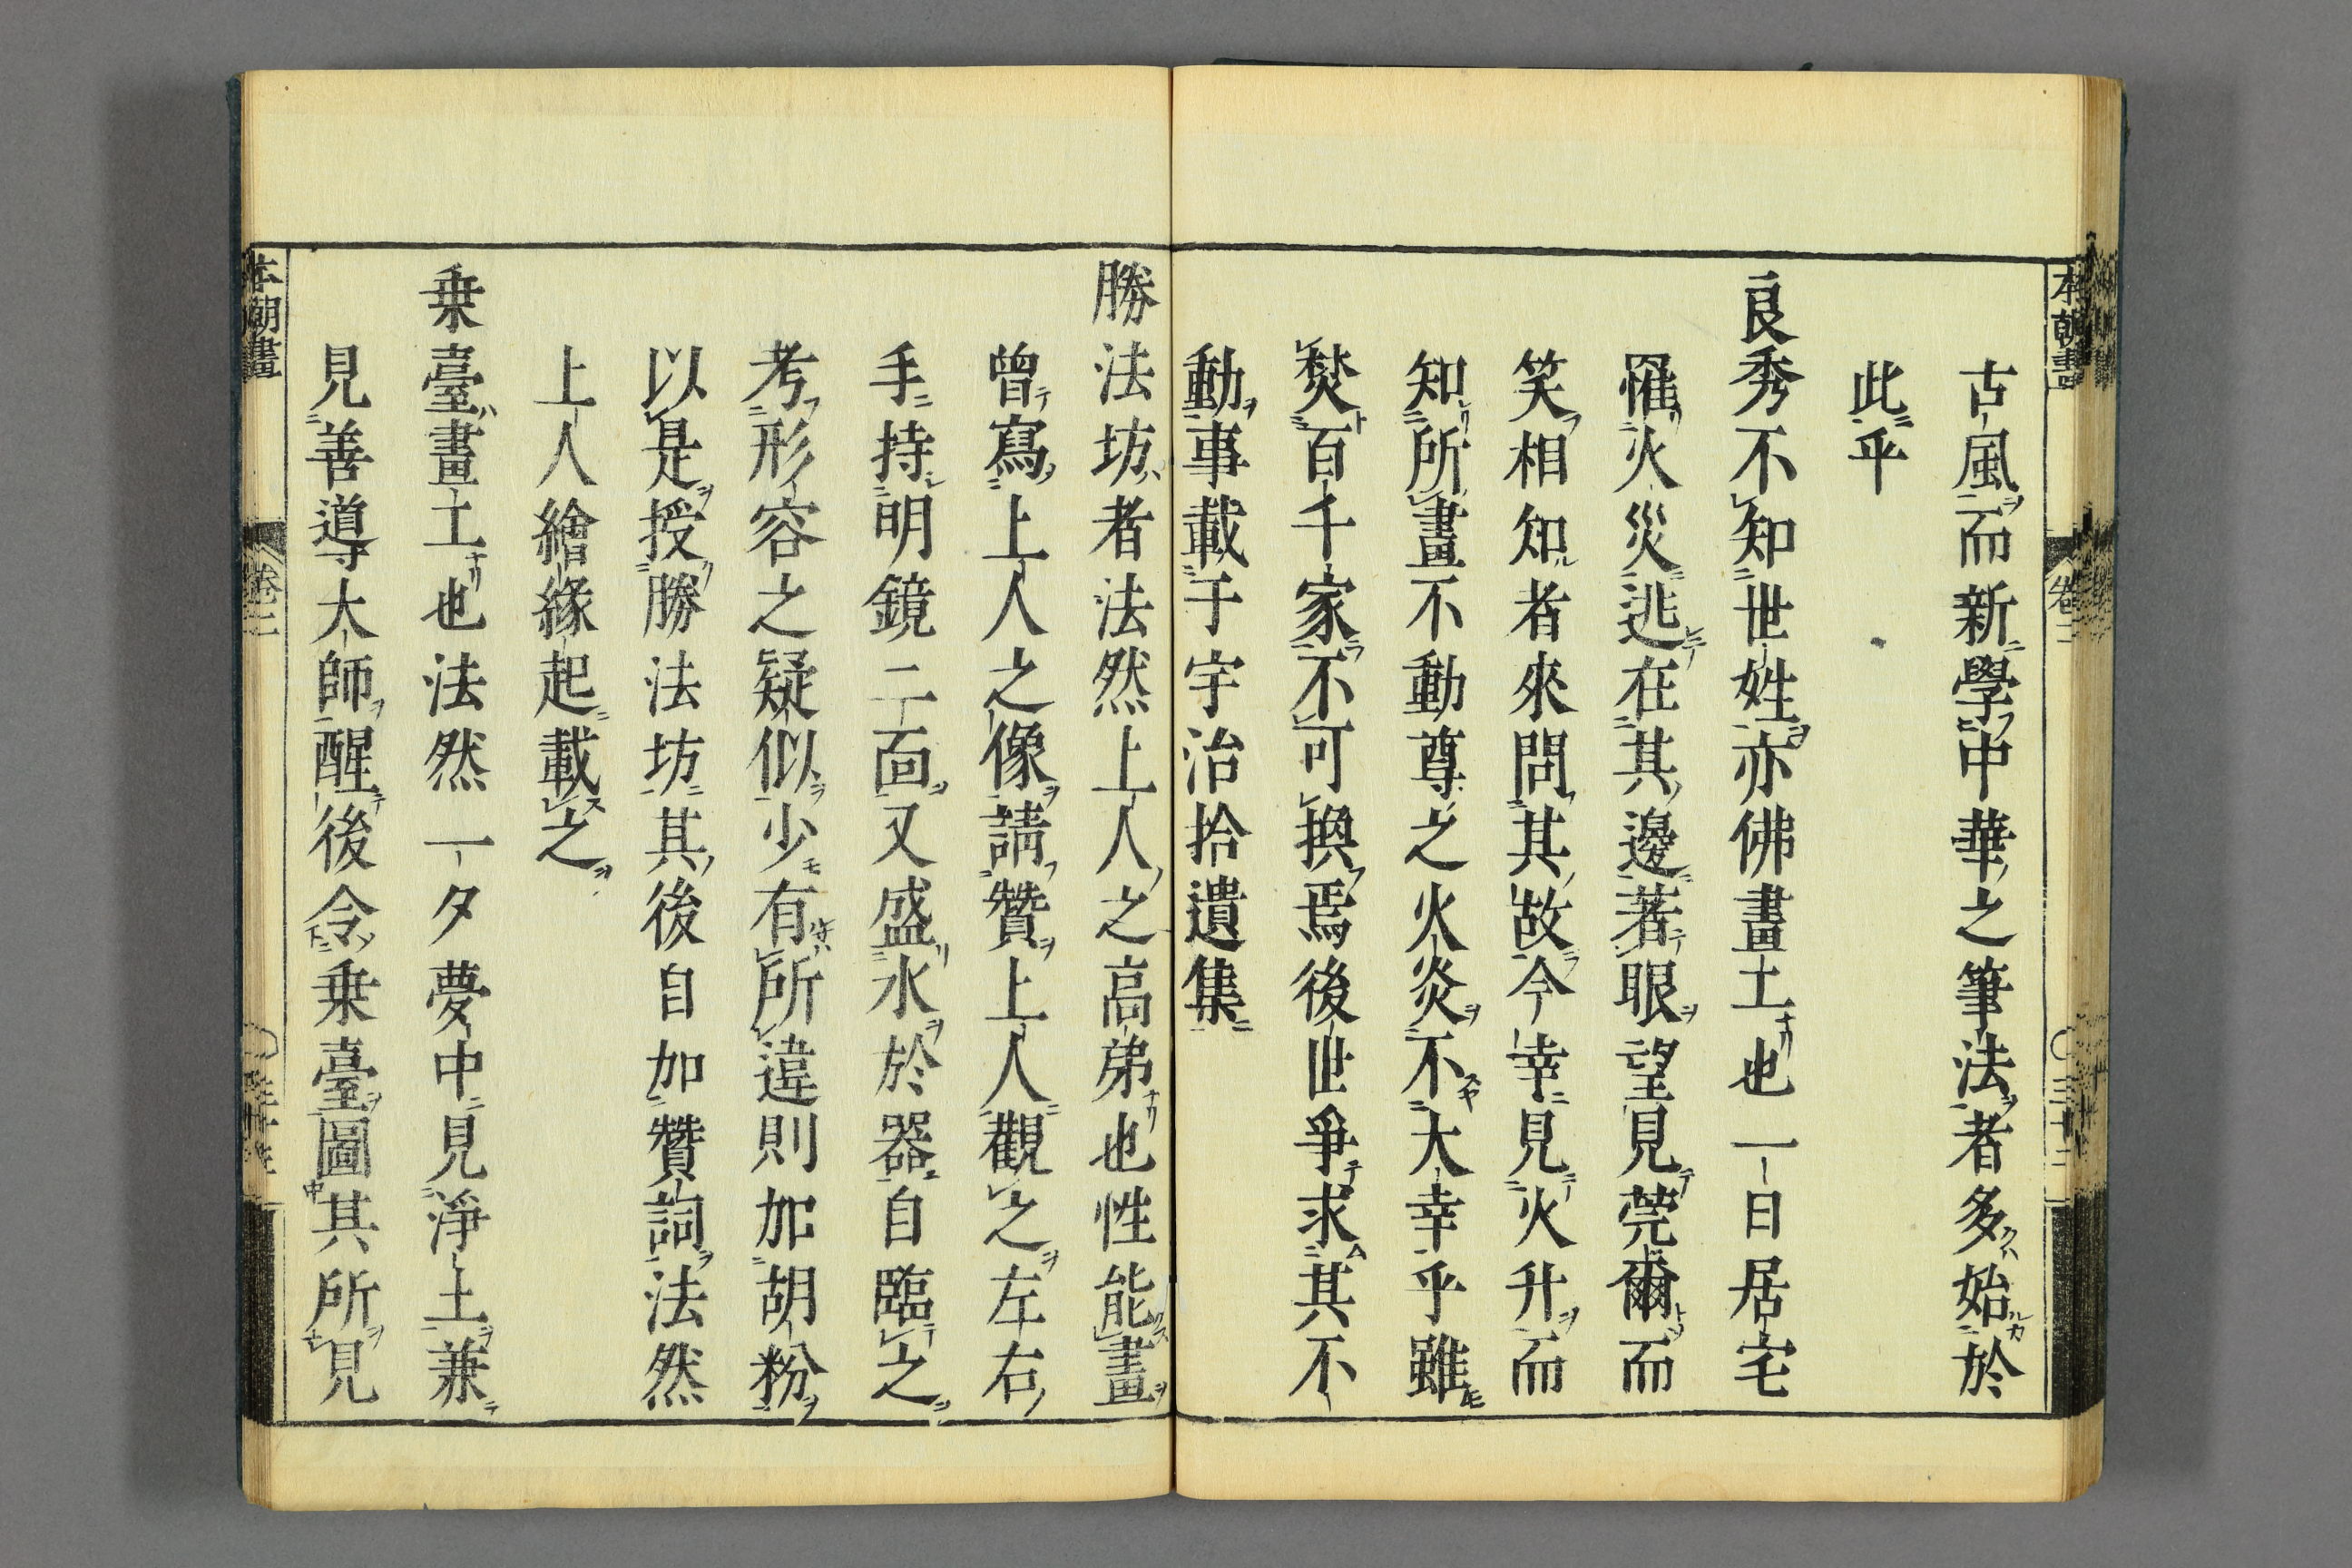 古風而新學中華之筆法者多始於
此乎
良秀不知世姓亦佛畫工也一日居宅
罹火災逃在其邊著眼望見莞爾而
笑相知者來問其故今幸見火升而
知所畫不動尊之火炎不大幸乎雖
焚百千家不可換焉後世爭求其不
動事載于宇治拾遺集
勝法坊者法然上人之高弟也性能畫
曾寫上人之像請贊上人觀之左右
手持明鏡二面又盛水於器自臨之
考形容之疑似少有所違則加胡粉
以是授勝法坊其後自加贊詞法然
上人繪緣起載之
乗臺畫工也法然一夕夢中見淨土兼
見善導大師醒後令乗臺圖其所見
本朝畫
卷二